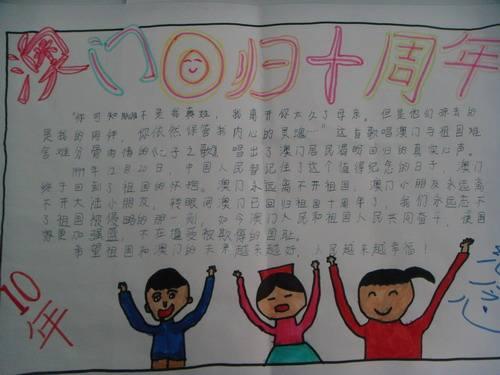 澳门回归十周年
"你可知 不是我真姓，我离开你太久了母亲。但是他们掠去的
是我的肉体，你依然保管我内心的灵魂…"这首歌唱澳门与祖国难
舍难分骨肉情的《七子之歌》唱出了澳门居民唱盼回归的真实心声。
1999年12月20日，中国人民都记住了这个值得纪念的日子，澳门
终于回到了祖国的怀抱。澳门永远离不开祖国，澳门小朋友永远离
不开大陆小朋友，转眼间澳门已回归祖国十周年了，我们永远忘不
了祖国被侵略的那一刻，如今澳门人民和祖国人民共同奋斗，使国
家更加强盛，不在遭受被欺侮的国耻。
希望祖国和澳门的未来越来越好，人民越来越幸福！
10
年